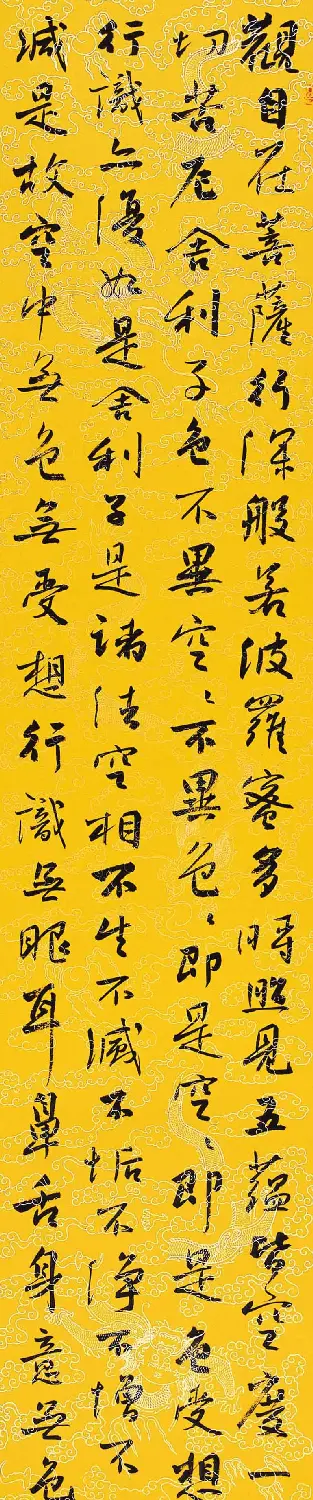 觀自在菩薩行深般若波羅蜜多時照見五蘊皆空度一
切苦厄舍利子色不異空〻不異色〻即是空〻即是色受想
行識亦復如是舍利子是諸法空相不生不滅不垢不淨不增不
減是故空中無色無受想行識無眼耳鼻舌身意無色